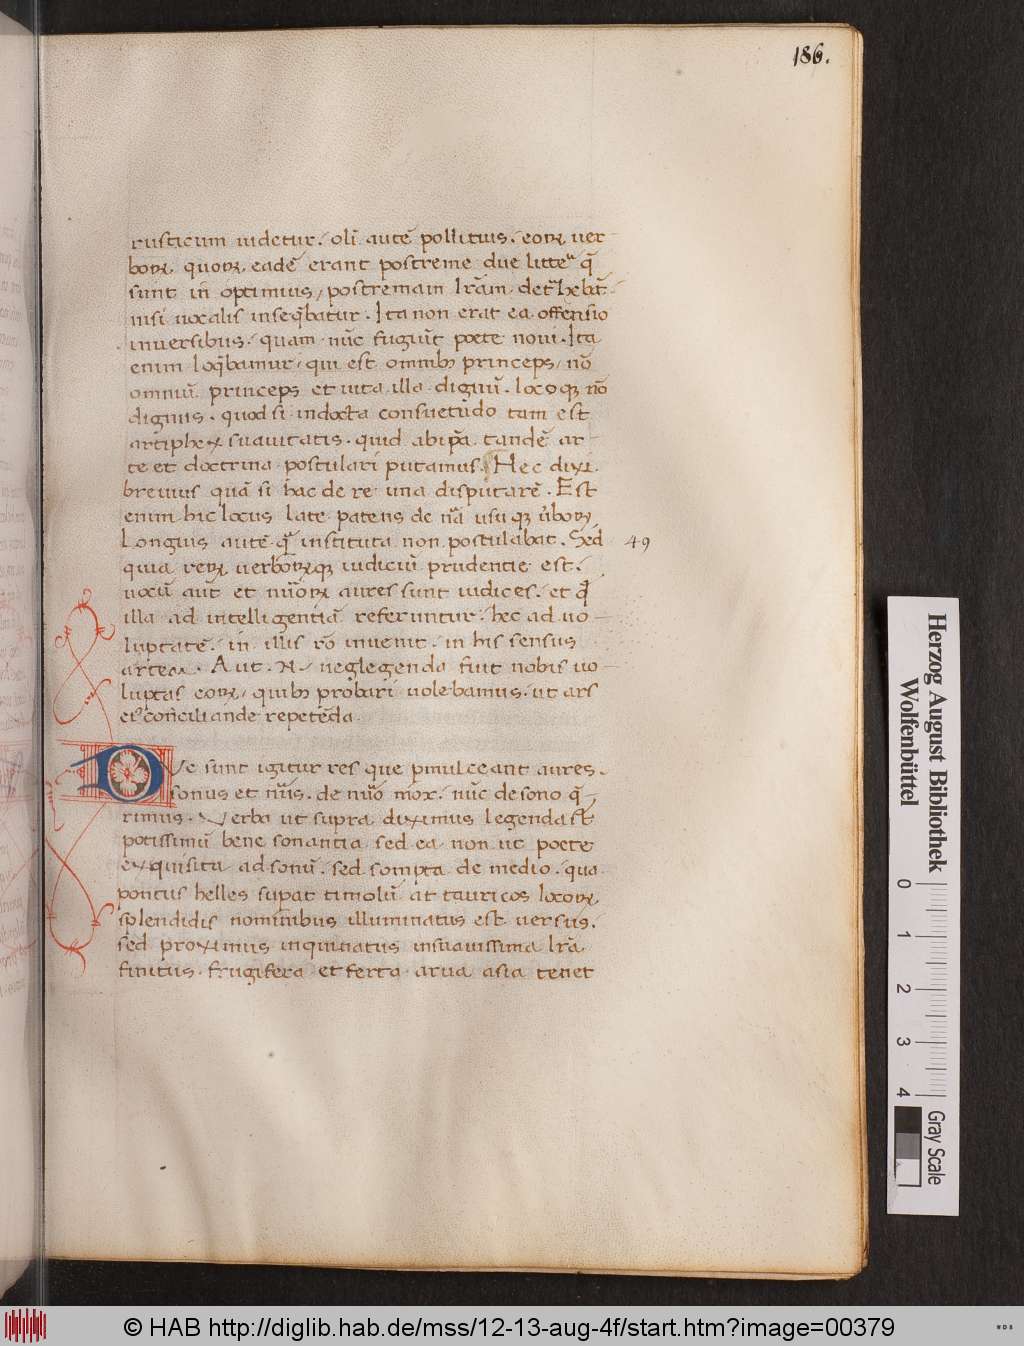 186.
rusticum uidetur. oli autē pollitius. eoꝝ uer
boꝝ. quoꝝ. eadē erant postreme due litte qͣ
sunt in optimius, postremam lrām. detͣhebāt
nisi uocalis inseqͣbatur. Ita non erat ea offensio
inuersibus. quam nūc fugiūt poete noui. Ita
enim loqͣbamur, qui est omnibꝫ princeps, nō
omniū princeps et uita illa dignū. locoqꝫ nō
dignus. quod si indocta consuetudo tam est
artiphex suauitatis. quid abipͣa tandē ar-
te et doctrina postulari putamus. Hec dixi
breuius quā si hac de re una disputarē. Est
enim hic locus late patens de nͣa usuqꝫ ūboꝝ
Longius autē qͣ instituta non postulabat. Sed 49
quia reꝝ uerboꝝqꝫ iudiciū prudentie est.
uocū aūt et nūoꝝ aures sunt iudices. et qͣ
illa ad intelligentiā referuntur. hec ad uo-
luptatē. in illis rō inuenit. in his sensus
artem. Aut. N. neglegenda fuit nobis uo-
luptas eoꝝ, quibꝫ probari uolebamus. ut ars
eiꝰ conciliande repetēda.
Que sunt igitur res que pmulceant aures.
sonus et nūs. de nūo mox. nūc de sono qͣ-
rimus. Verba ut supra diximus legenda st̄
potissimū bene sonantia sed ea non ut poete
exquisita ad sonū. sed sompta de medio. qua
pontus helles supat timolū at tauricos locoꝝ.
splendidis nominibus illuminatus est uersus.
sed proximus inquinatus insuauissima lrā
finitus. frugifera et ferta arua asia tenet
Herzog August Bibliothek
Wolfenbüttel
0 1 2 3 4
Gray Scale
© HAB http://diglib.hab.de/mss/12-13-aug-4f/start.htm?image=00379